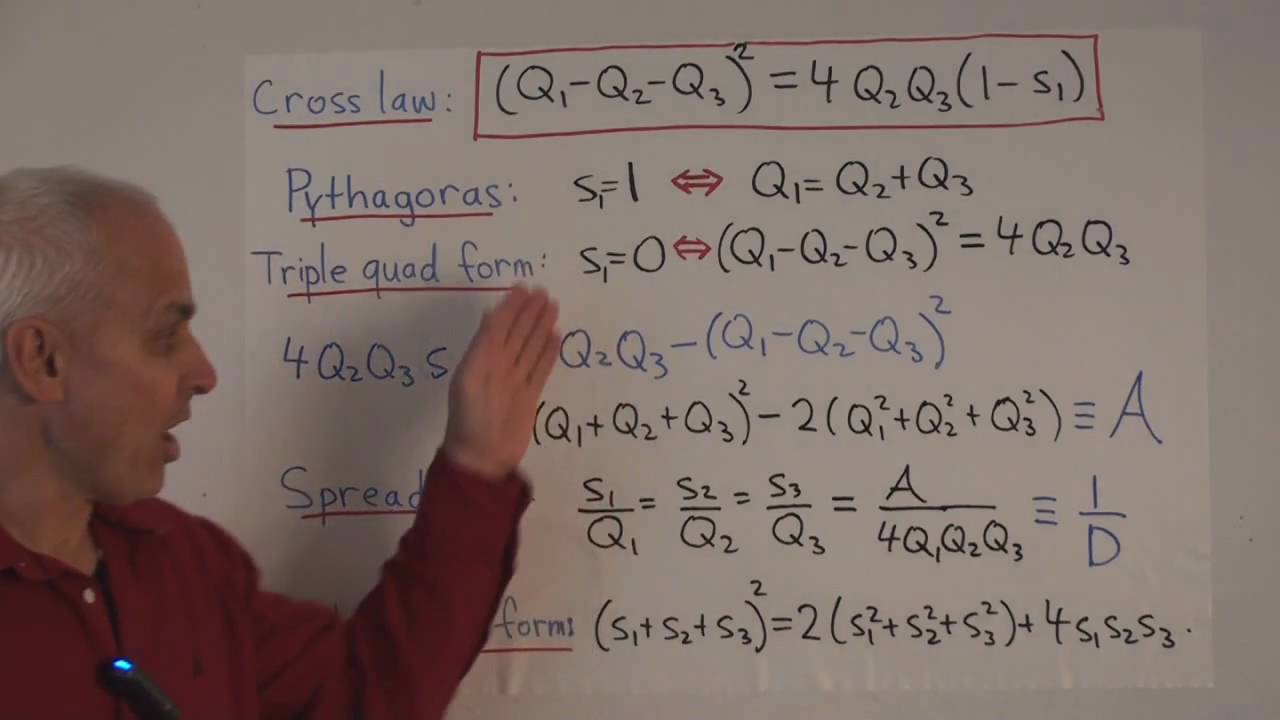 Cross law: (Q₁-Q₂-Q₃)² = 4Q₂Q₃(1-s₁)
Pythagoras: s₁=1 ⇔ Q₁=Q₂+Q₃
Triple quad form: s₁=0 ⇔ (Q₁-Q₂-Q₃)² = 4Q₂Q₃
4Q₂Q₃s Q₂Q₃-(Q₁-Q₂-Q₃)²
(Q₁+Q₂+Q₃)²-2(Q₁²+Q₂²+Q₃²) ≡ A
Spread s₁/Q₁ = s₂/Q₂ = s₃/Q₃ = A/4Q₁Q₂Q₃ ≡ 1/D
form: (s₁+s₂+s₃)²=2(s₁²+s₂²+s₃²)+4s₁s₂s₃.